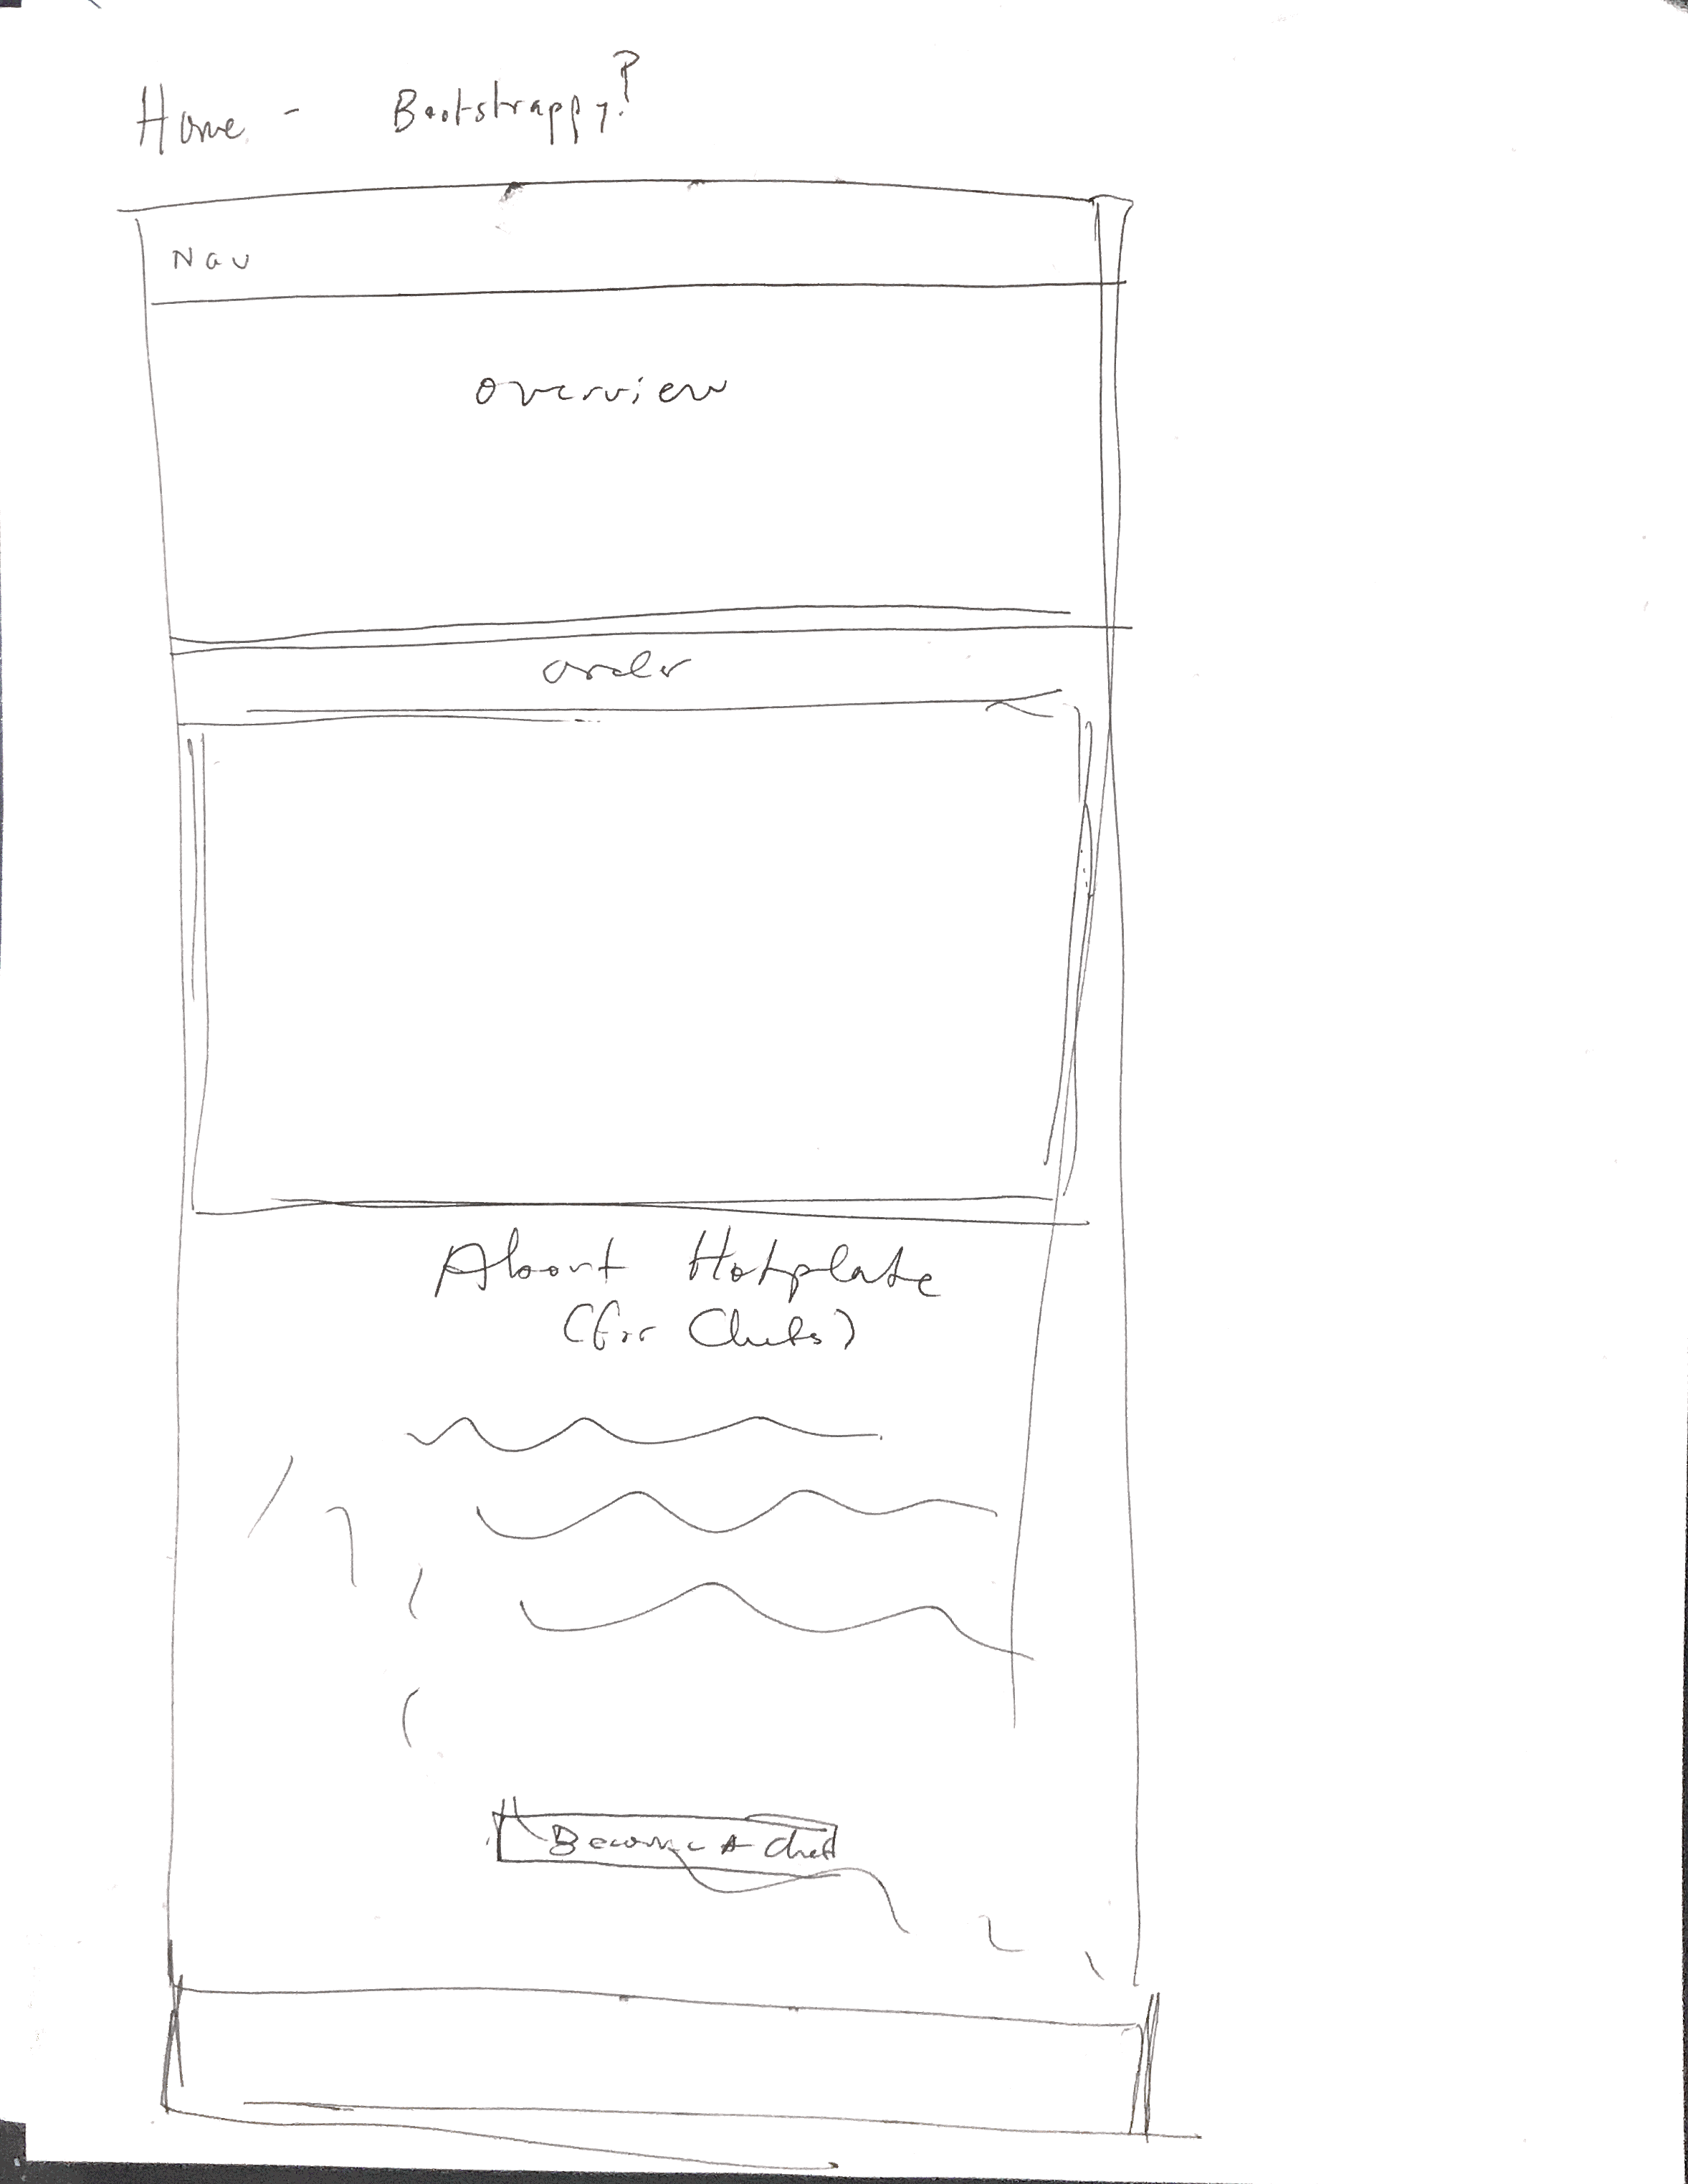 Home - Bootstrappy?
Nav
overview
order
About Hotplate
(for Chefs)
Become A Chef